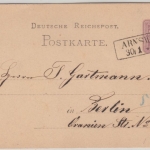 DEUTSCHE REICHSPOST.
POSTKARTE.
ARNS
30 1
Herrn F. Gartmann
in Berlin
Oranien Str. N.